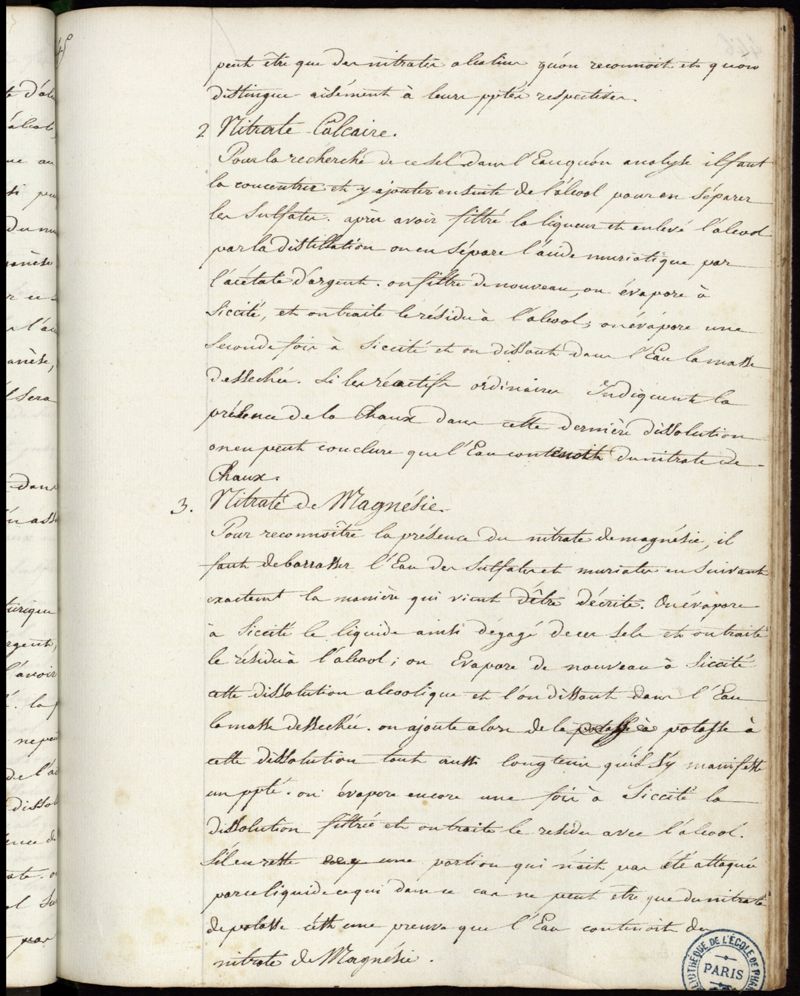 peut être que des nitrates alcalins qu'on reconnoit et qu'on
distingue aisément à leurs pptés respectives.
2 Nitrate Calcaire.
Pour la recherche de ce sel dans l'Eau qu'on analyse il faut
la concentrer et y ajouter ensuite de l'álcool pour en séparer
les Sulfates. après avoir filtré la liqueur et enlevé l'alcool
par la distillation on en sépare l'acide muriatique par
l'acétate d'argent. on filtre de nouveau, on évapore à
Siccité, et on traite le résidu à l'álcool; on évapore une
seconde fois à Siccité et on dissout dans l'Eau la masse
desséchée. Si les réactifs ordinaires Indiquent la
présence de la Chaux dans cette dernière dissolution
on en peut conclure que l'Eau contenoit du nitrate de
Chaux.
3. Nitrate de Magnésie.
Pour reconnoître la présence du nitrate de magnésie, il
faut debarrasser l'Eau des Sulfates et muriates en suivant
exactemt la manière qui vient d'être décrite. On évapore
à Siccité le liquide ainsi dégagé de ces sels et on traite
le résidu à l'álcool; on Evapore de nouveau à Siccité
cette dissolution alcoolique et l'on dissout dans l'Eau
la masse desséchée. on ajoute alors de la potasse à potasse à
cette dissolution tout aussi longtems qu'il s'y manifeste
un ppté. on évapore encore une fois à Siccité la
dissolution filtrée et on traite le residu avec l'álcool.
S'il en reste une portion qui n'ait pas été attaquée
par ce liquide ce qui dans ce cas ne peut être que du nitrate
de potasse c'est une preuve que l'Eau contenoit du
nitrate de Magnésie.
BIBLIOTHÈQUE DE L'ÉCOLE DE PHAR
PARIS